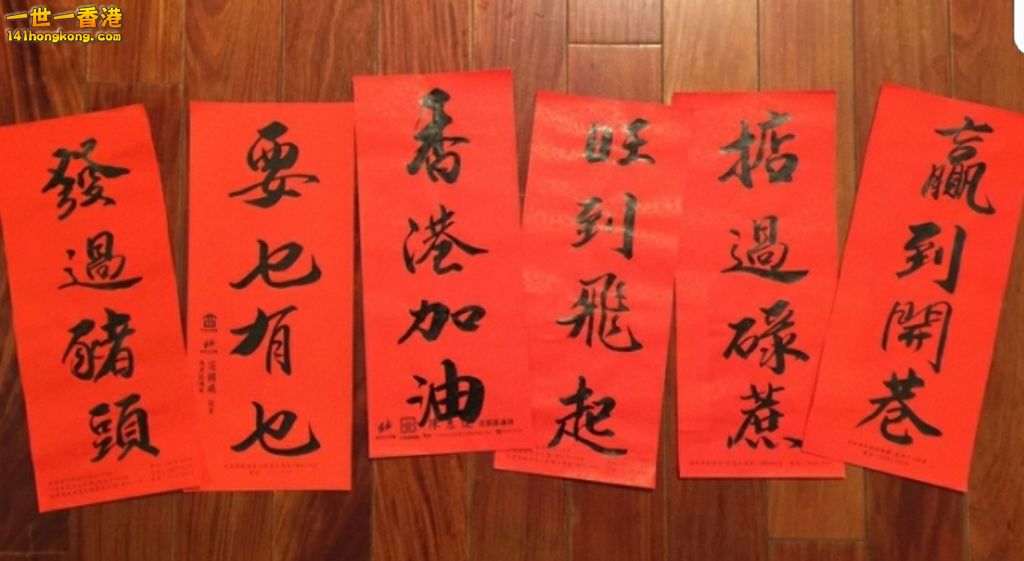 一世一香港
141hongkong.com
發過豬頭
要乜有乜
香港加油
旺到飛起
掂過碌蔗
贏到開巷